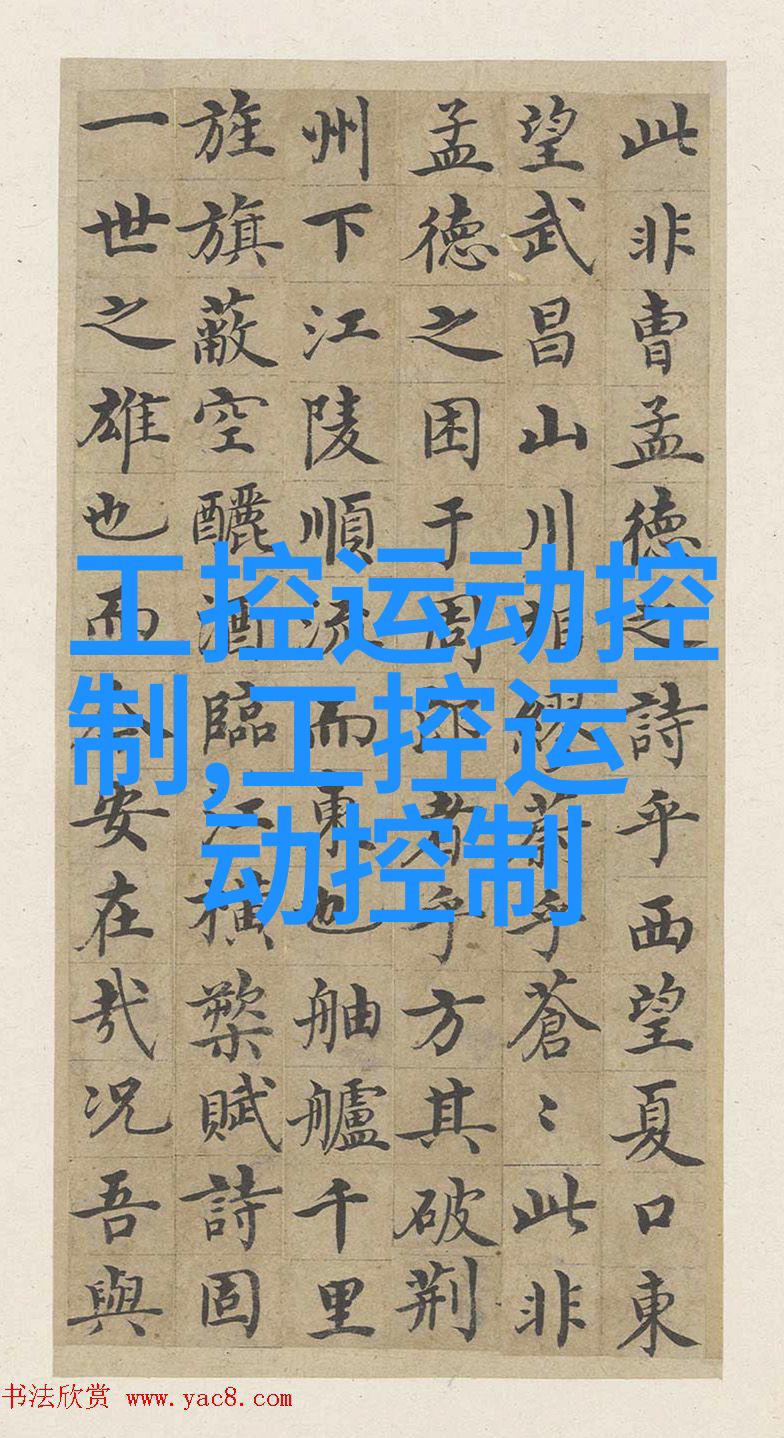 此非曹孟德之詩乎西望夏口東
望武昌山川相繆蔚乎蒼〻此非
孟德之困于周郎者乎方其破荆
州下江陵順流而東也舳艫千里
旌旗蔽空釃酒臨江橫槊賦詩固
一世之雄也而今安在哉况吾與
工控运动控
制,工控运
动控制
书法欣赏 www.yac8.com